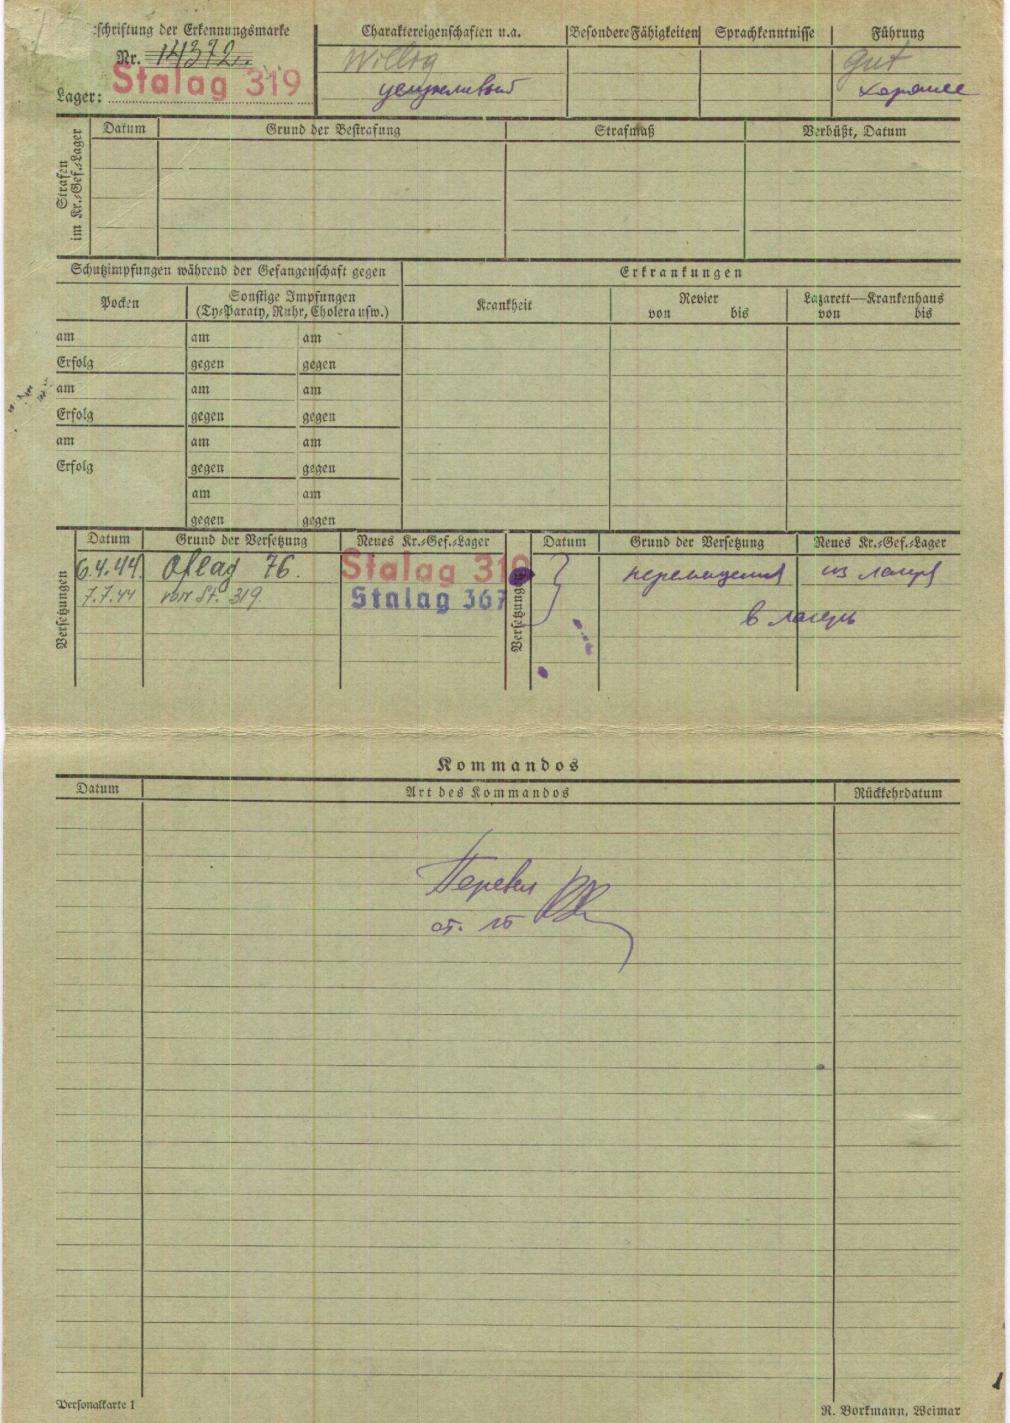 schriftung der Erkennungsmarke
Nr. 14372.
Lager: Stalag 319
Charaktereigenschaften u.a.
Willig
услужливый
Besondere Fähigkeiten
Sprachkenntnisse
Führung
Gut
хорошее
Strafen im Kr.-Gef.-Lager
Datum Grund der Bestrafung Strafmaß Verbüßt, Datum
Schutzimpfungen während der Gefangenschaft gegen
Pocken
Sonstige Impfungen
(Ty-Paraty, Ruhr, Cholera usw.)
am am am
Erfolg gegen gegen
am am am
Erfolg gegen gegen
am am am
Erfolg gegen gegen
am am
gegen gegen
Erkrankungen
Krankheit
Revier
von bis
Lazarett—Krankenhaus
von bis
Versetzungen
Datum Grund der Versetzung Neues Kr.-Gef.-Lager
6.4.44. Oflag 76. Stalag 319
7.7.44 von St. 319. Stalag 367
Versetzungen
Datum Grund der Versetzung Neues Kr.-Gef.-Lager
перемещения из лагеря
в лагерь
Kommandos
Datum Art des Kommandos Rückkehrdatum
Перевел
Personalkarte 1
R. Borkmann, Weimar